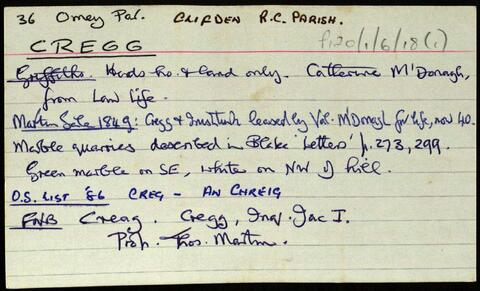 36 Omey Par. CLIFDEN R.C. PARISH.
P120/1/6/18(1)
CREGG
Griffiths. Herds ho. & land only. Catherine M'Donagh,
from Law Life.
Martin Sale 1849: Cregg & leased by Val. M'Donagh for life, now 40.
Marble quarries described in Blake 'Letters' p. 273, 299.
Green marble on SE, white on NW of hill.
O.S. LIST '86 CREG - AN CHREIG
FNB Creag. Cregg, Inq. Jac I.
Prop. Thos. Martin.